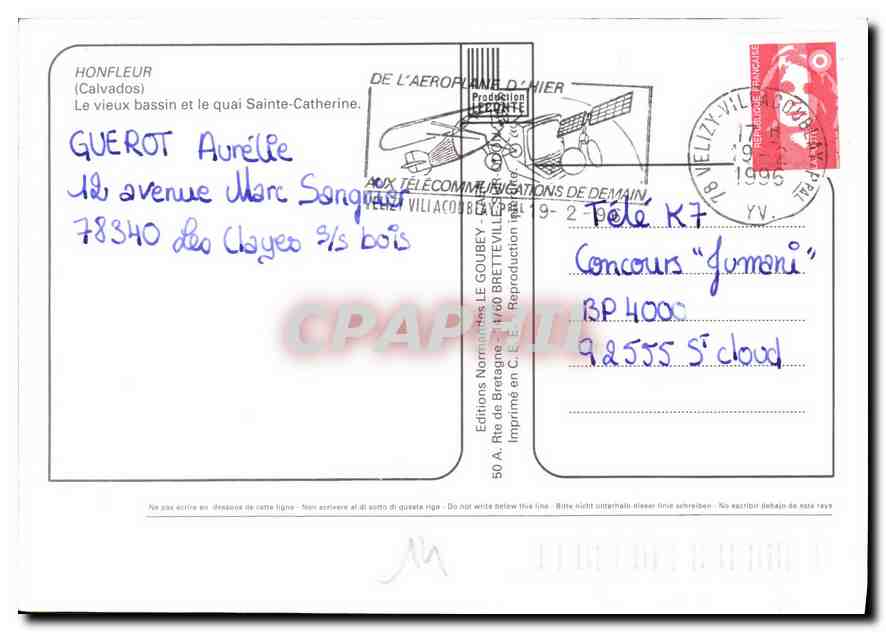 HONFLEUR
(Calvados)
Le vieux bassin et le quai Sainte-Catherine.
GUEROT Aurélie
12 avenue Marc Sangnier
78340 Les Clayes s/s bois
DE L'AEROPLANE D'HIER
Production
LECONTE
AUX TÉLÉCOMMUNICATIONS DE DEMAIN
VELIZY VILLACOUBLAY PPAL 19-2-96
REPUBLIQUE FRANÇAISE
78 VELIZY-VILLACOUBLAY PPAL
17 H
19
1996
YV.
Télé K7
Concours "Jumani"
BP 4000
92555 St Cloud
Editions Normandes LE GOUBEY
50 A. Rte de Bretagne - 14760 BRETTEVILLE
Imprimé en C. E. E. - Reproduction interdite
CPAPHIL
Ne pas écrire en dessous de cette ligne - Non scrivere al di sotto di questa riga - Do not write below this line - Bitte nicht unterhalb dieser linie schreiben - No escribir debajo de esta raya